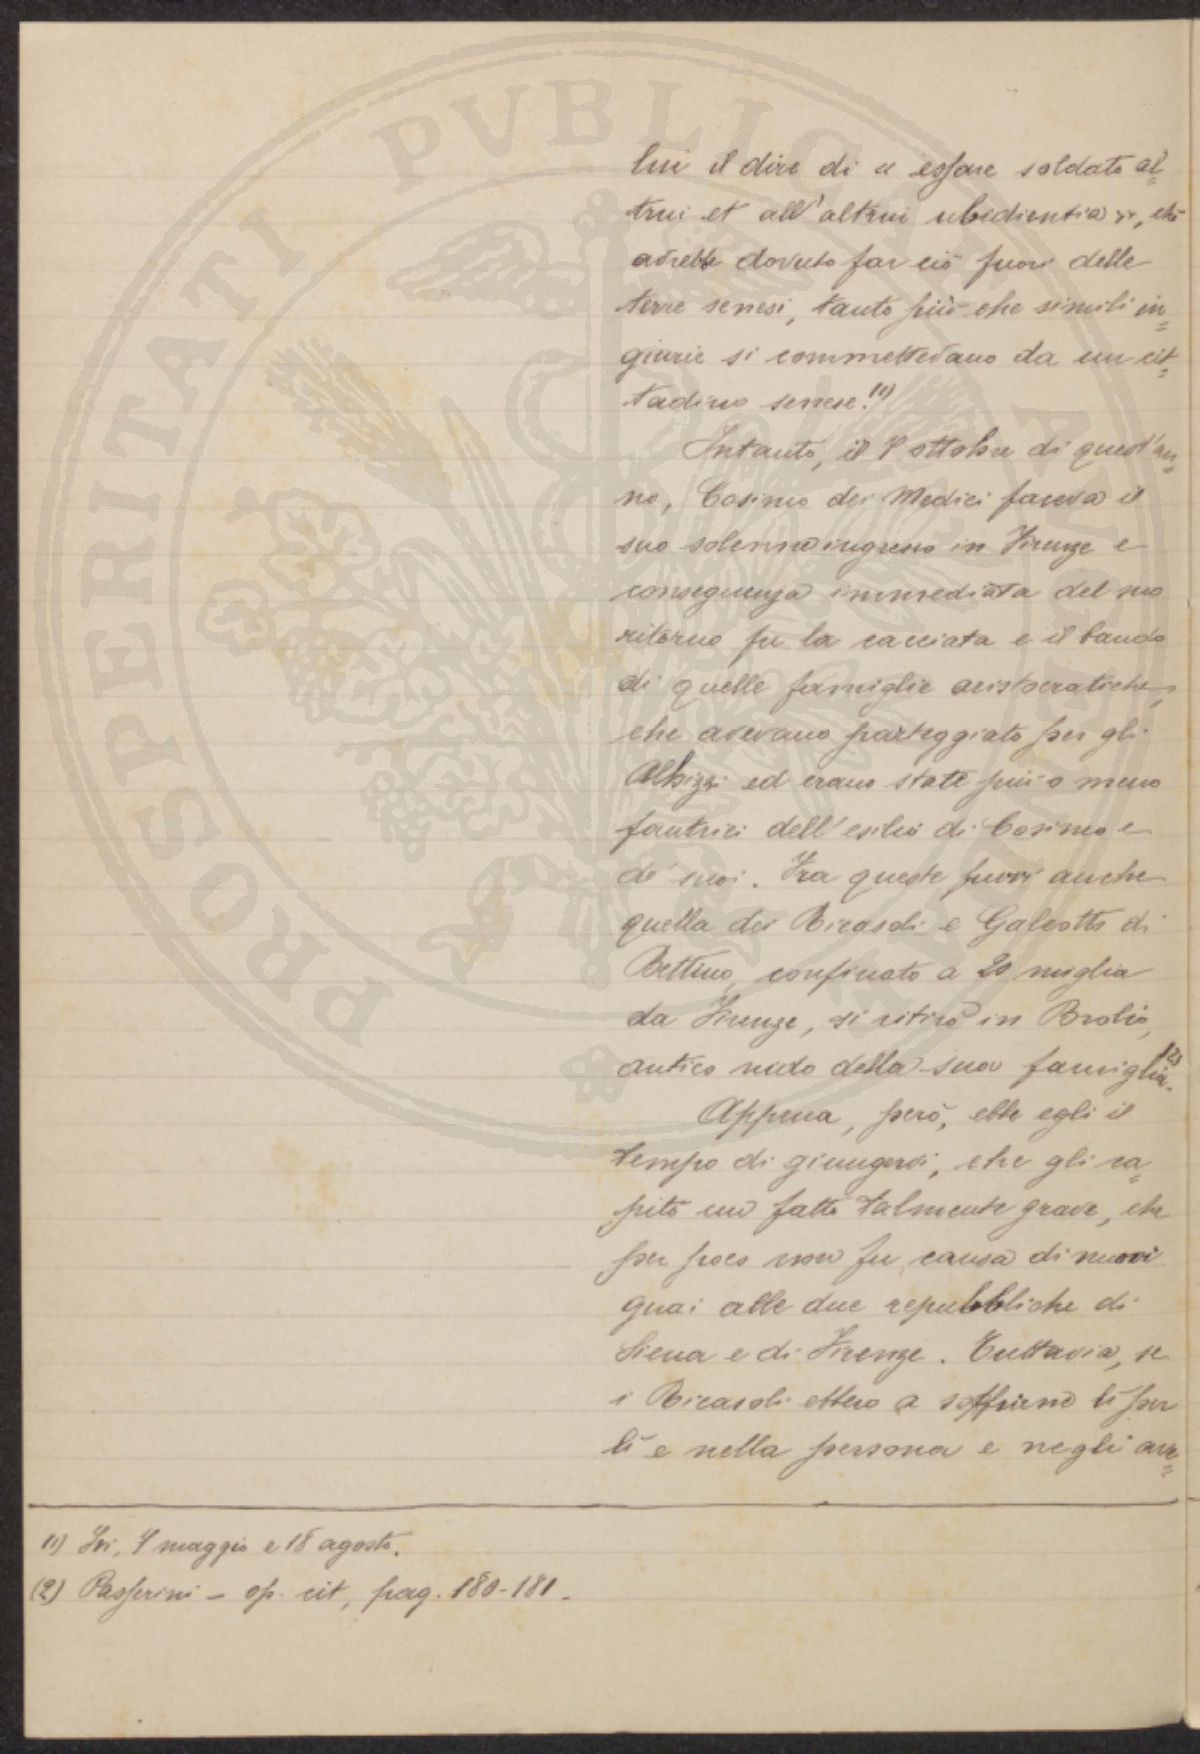 lui il dire di « essere soldato al=
trui et all'altrui ubedientia », chè
avrebbe dovuto far ciò fuori delle
terre senesi, tanto più che simili in=
giurie si commettevano da un cit=
tadino senese.(1)
Intanto, il 7 ottobre di quest'an=
no, Cosimo dei Medici faceva il
suo solenne ingresso in Firenze e
conseguenza immediata del suo
ritorno fu la cacciata e il bando
di quelle famiglie aristocratiche,
che avevano parteggiato per gli
Albizzi ed erano state più o meno
fautrici dell'esilio di Cosimo e
de' suoi. Fra queste fuvvi anche
quella dei Ricasoli e Galeotto di
Bettino, confinato a 20 miglia
da Firenze, si ritirò in Brolio,
antico nido della sua famiglia.(2)
Appena, però, ebbe egli il
tempo di giungervi, che gli ca=
pitò un fatto talmente grave, che
per poco non fu causa di nuovi
guai alle due repubbliche di
Siena e di Firenze. Tuttavia, se
i Ricasoli ebbero a soffrirne lì per
lì e nella persona e negli ave=
(1) Ivi, 7 maggio e 18 agosto.
(2) Passerini – op. cit, pag. 180-181.
PROSPERITATI PVBLICAE